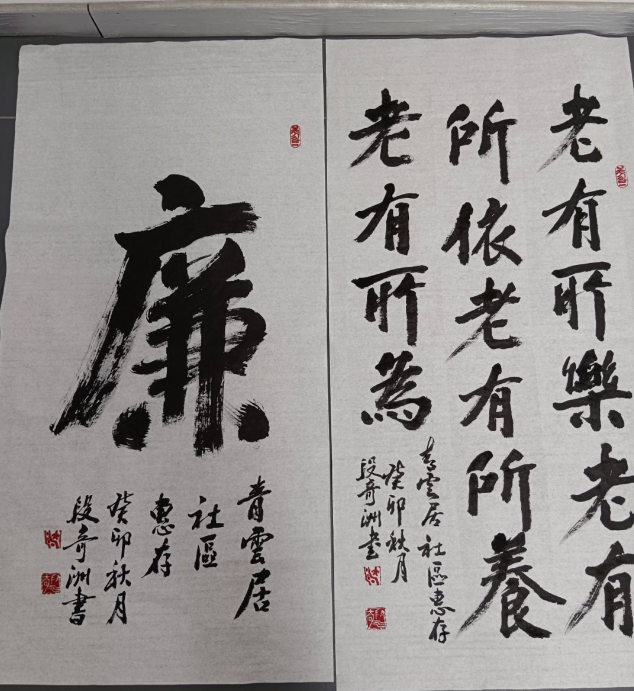 老有所樂老有
所依老有所養
老有所為
青雲居社區惠存
癸卯秋月
段奇洲書
廉
青雲居
社區
惠存
癸卯秋月
段奇洲書